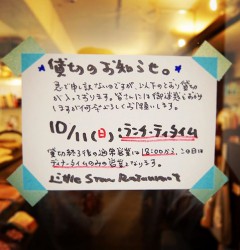 貸切のお知らせ。
急で申し訳ないのですが、以下のとおり貸切
が入っております。皆さんにはご迷惑をおかけ
しますが何卒よろしくお願いします。
10/11(日) :ランチ・ティタイム
貸切終了後の通常営業は18:00から、この日は
ディナータイムのみの営業となります。
Little Star Restaurant